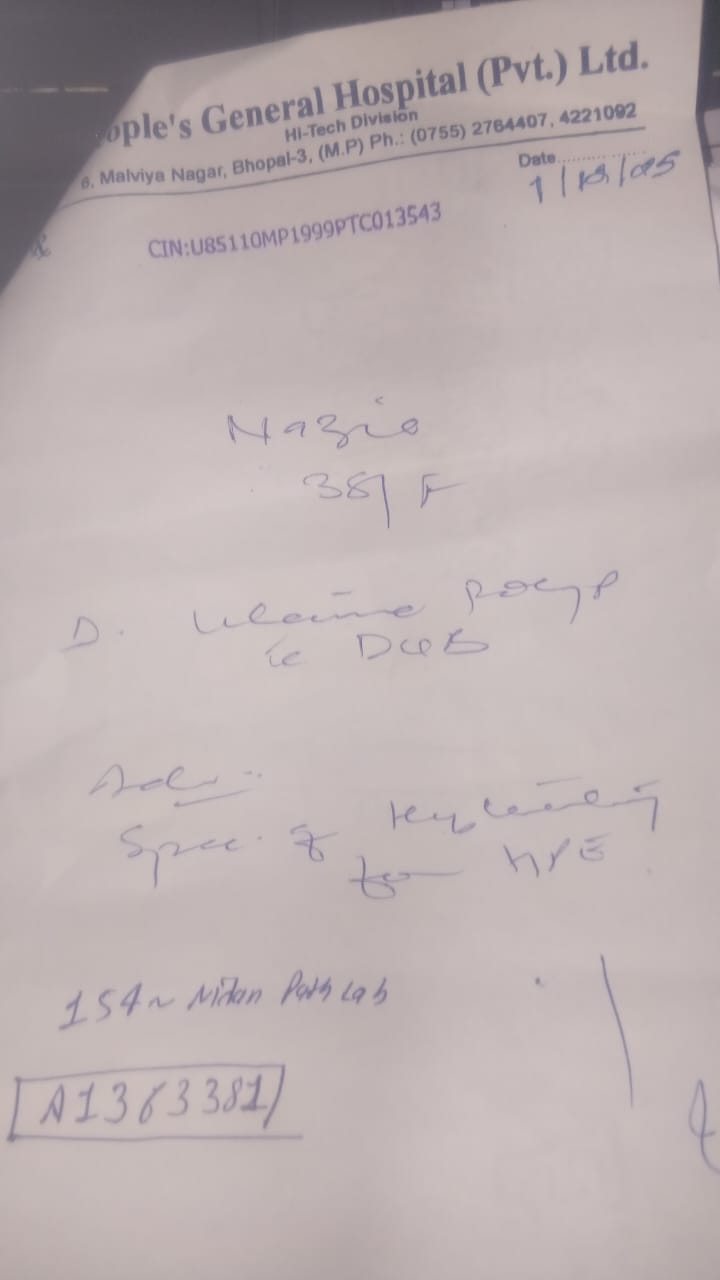 ople's General Hospital (Pvt.) Ltd.
Hi-Tech Division
6, Malviya Nagar, Bhopal-3, (M.P) Ph.: (0755) 2764407, 4221092
Date
CIN:U85110MP1999PTC013543
38/F
D. Uterine Polyp
c DUB
Adv:
Spec. of Hysterectomy
for HPE
154~ Nidan Path Lab
A1363381